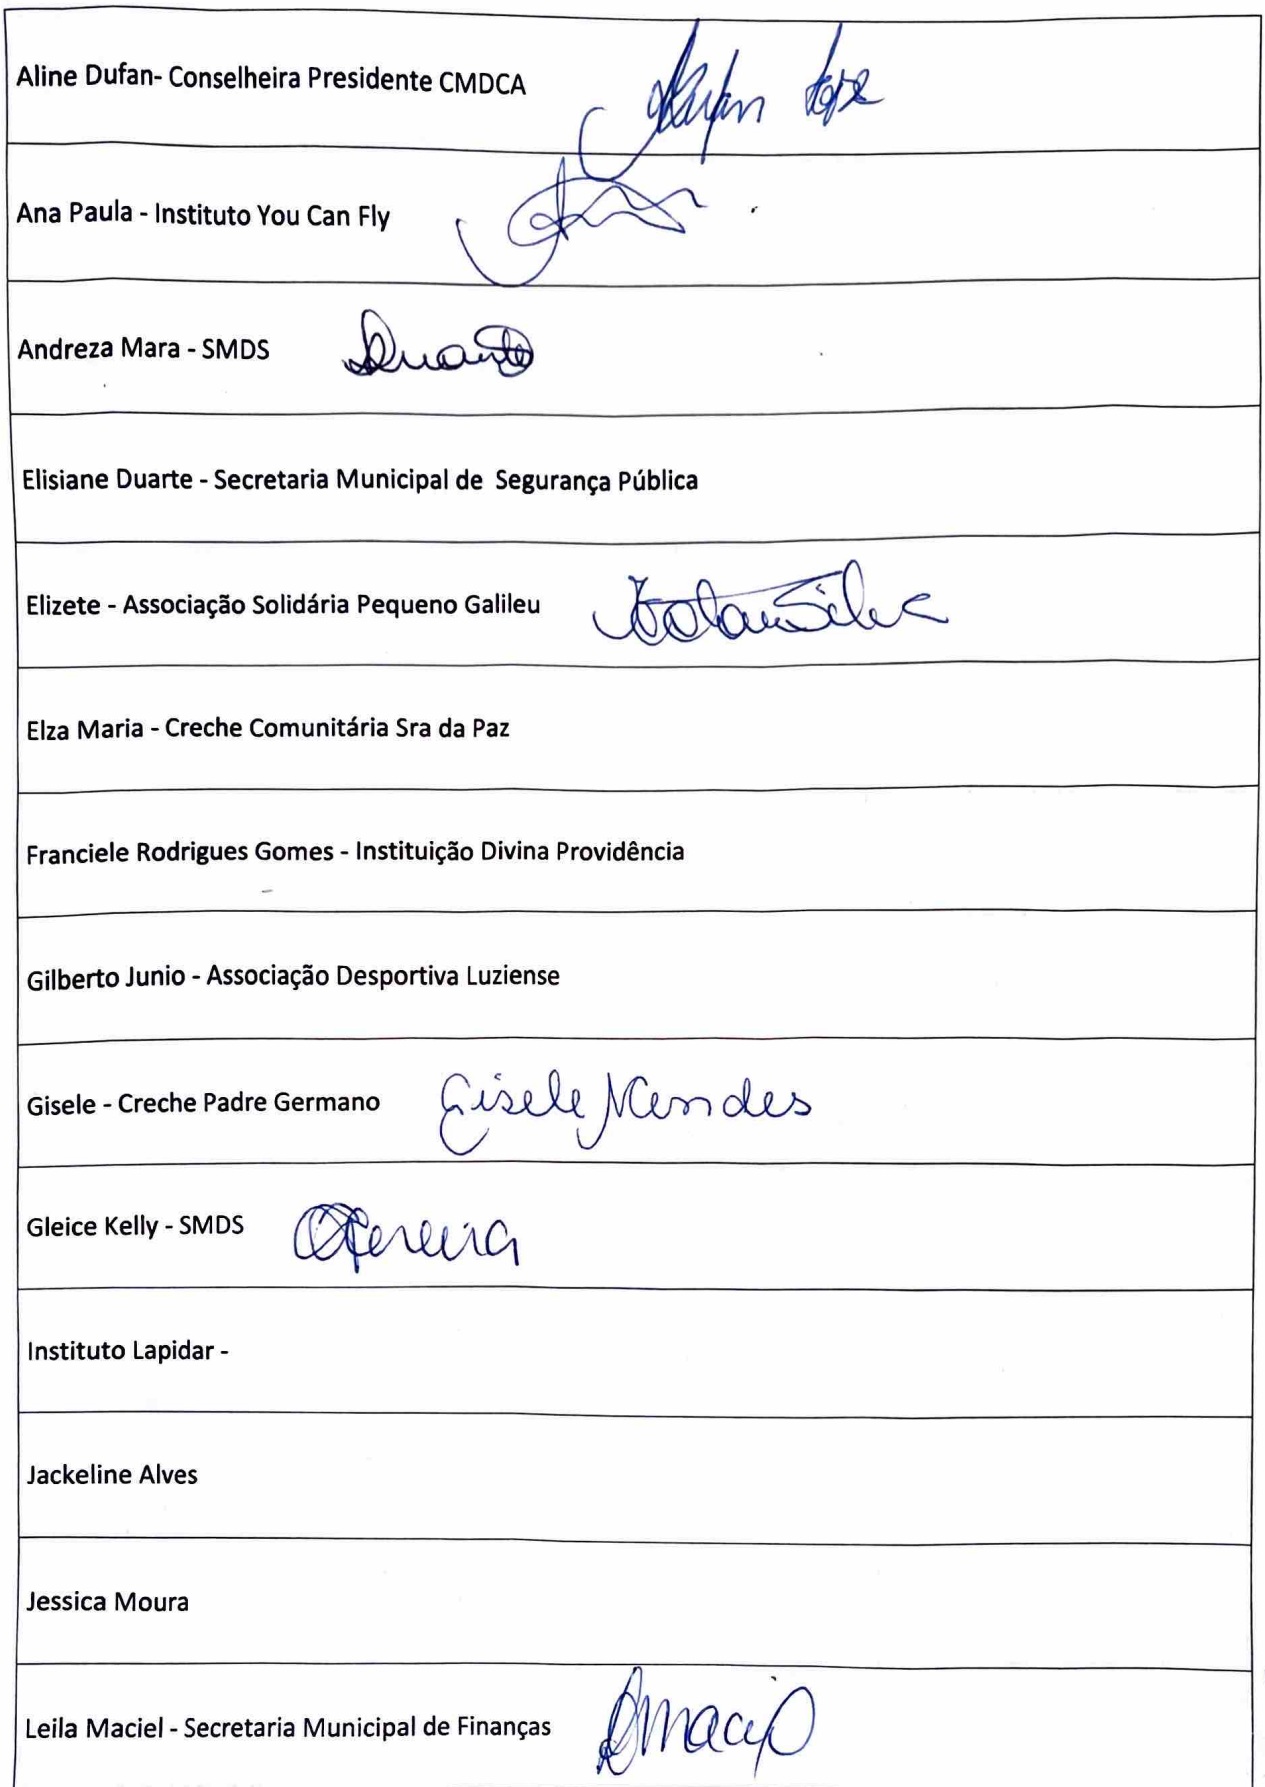 Aline Dufan- Conselheira Presidente CMDCA
Ana Paula - Instituto You Can Fly
Andreza Mara - SMDS
Elisiane Duarte - Secretaria Municipal de Segurança Pública
Elizete - Associação Solidária Pequeno Galileu
Elza Maria - Creche Comunitária Sra da Paz
Franciele Rodrigues Gomes - Instituição Divina Providência
Gilberto Junio - Associação Desportiva Luziense
Gisele - Creche Padre Germano Gisele Mendes
Gleice Kelly - SMDS
Instituto Lapidar -
Jackeline Alves
Jessica Moura
Leila Maciel - Secretaria Municipal de Finanças